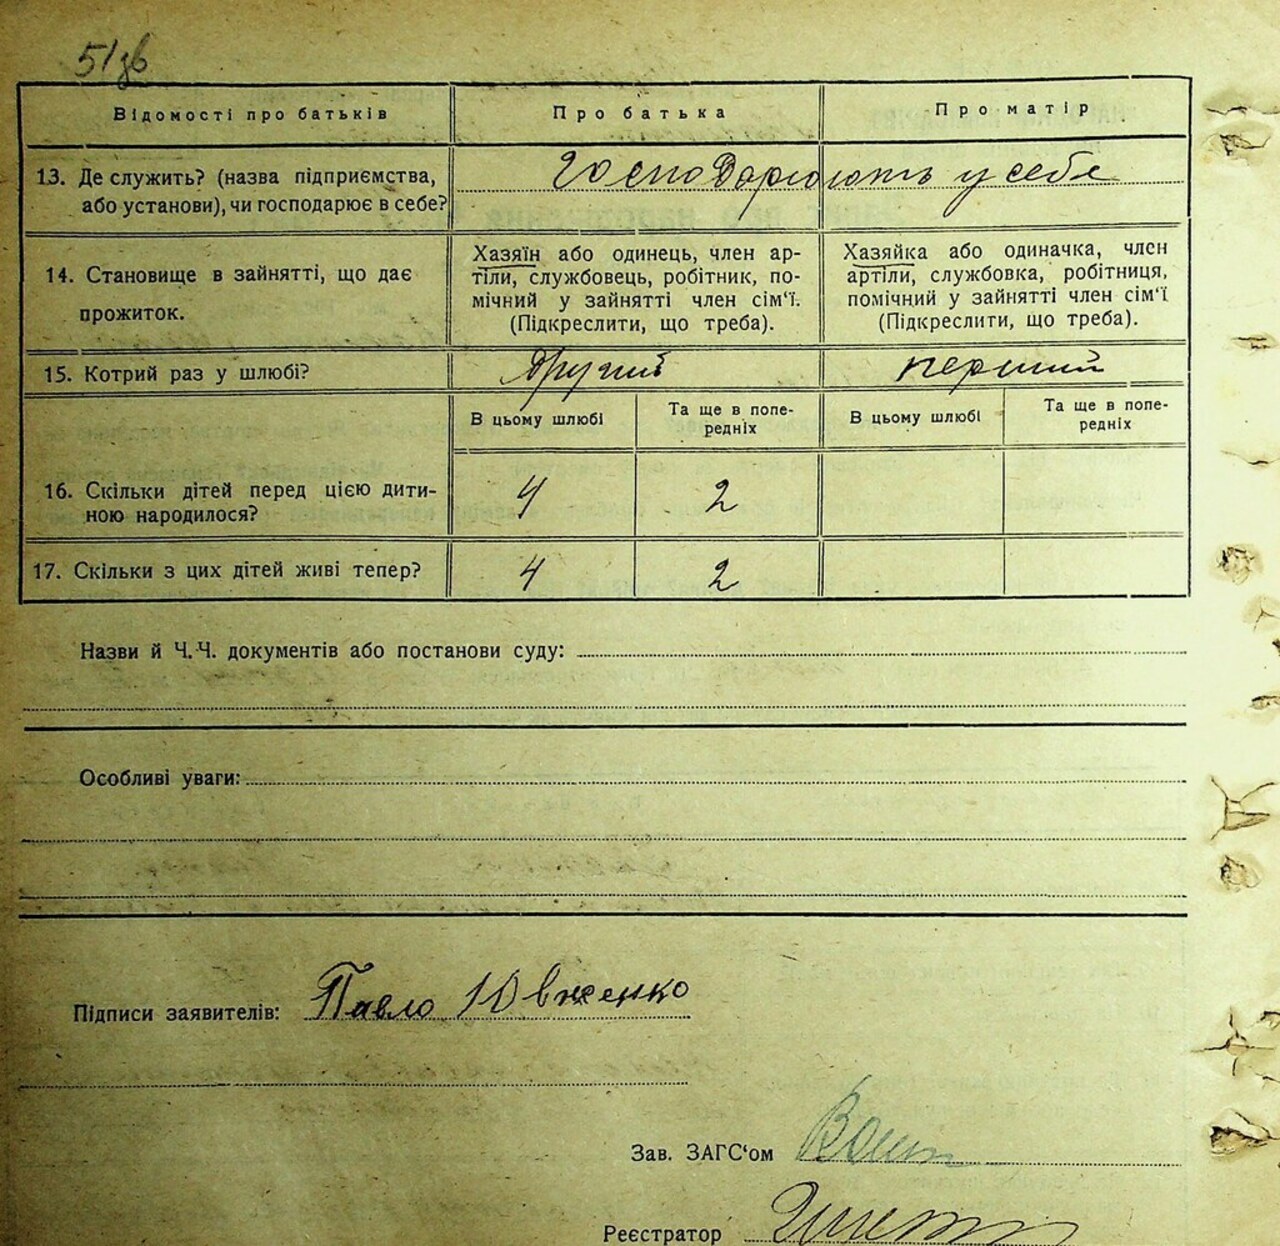 51зв
Відомості про батьків
Про батька
Про матір
13. Де служить? (назва підприємства,
або установи), чи господарює в себе?
Господарюють у себе
14. Становище в зайнятті, що дає
прожиток.
Хазяїн або одинець, член ар-
тіли, службовець, робітник, по-
мічний у зайнятті член сім'ї.
(Підкреслити, що треба).
Хазяйка або одиначка, член
артіли, службовка, робітниця,
помічний у зайнятті член сім'ї
(Підкреслити, що треба).
15. Котрий раз у шлюбі?
другий
перший
В цьому шлюбі
Та ще в попе-
редніх
В цьому шлюбі
Та ще в попе-
редніх
16. Скільки дітей перед цією дити-
ною народилося?
4
2
17. Скільки з цих дітей живі тепер?
4
2
Назви й Ч.Ч. документів або постанови суду:
Особливі уваги:
Підписи заявителів: Павло Ювженко
Зав. ЗАГС'ом
Реєстратор